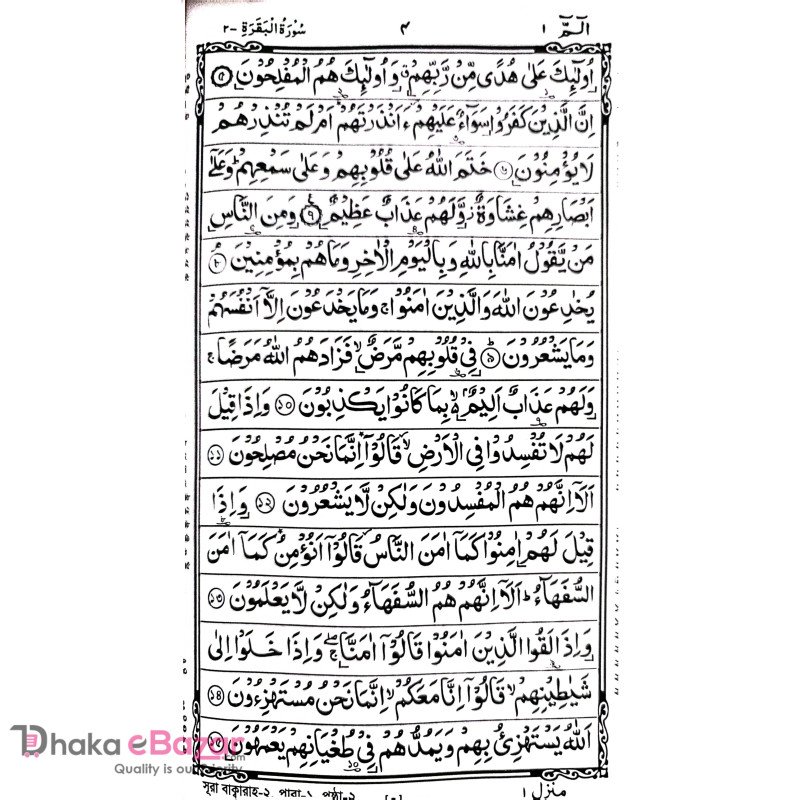 الٓمّٓ ١
٤
سُوْرَةُ الْبَقَرَةِ -٢
اُولٰٓئِكَ عَلٰى هُدًى مِّنْ رَّبِّهِمْ ق وَاُولٰٓئِكَ هُمُ الْمُفْلِحُوْنَ ৫
اِنَّ الَّذِيْنَ كَفَرُوْا سَوَآءٌ عَلَيْهِمْ ءَاَنْذَرْتَهُمْ اَمْ لَمْ تُنْذِرْهُمْ
لَا يُؤْمِنُوْنَ ৬ خَتَمَ اللّٰهُ عَلٰى قُلُوْبِهِمْ وَعَلٰى سَمْعِهِمْ ط وَعَلٰٓى
اَبْصَارِهِمْ غِشَاوَةٌ ز وَّلَهُمْ عَذَابٌ عَظِيْمٌ ৭ وَمِنَ النَّاسِ
مَنْ يَّقُوْلُ اٰمَنَّا بِاللّٰهِ وَبِالْيَوْمِ الْاٰخِرِ وَمَا هُمْ بِمُؤْمِنِيْنَ ৮
يُخٰدِعُوْنَ اللّٰهَ وَالَّذِيْنَ اٰمَنُوْا ج وَمَا يَخْدَعُوْنَ اِلَّآ اَنْفُسَهُمْ
وَمَا يَشْعُرُوْنَ ৯ فِيْ قُلُوْبِهِمْ مَّرَضٌ لا فَزَادَهُمُ اللّٰهُ مَرَضًا ج
وَلَهُمْ عَذَابٌ اَلِيْمٌ لا بِمَا كَانُوْا يَكْذِبُوْنَ ১০ وَاِذَا قِيْلَ
لَهُمْ لَا تُفْسِدُوْا فِى الْاَرْضِ لا قَالُوْٓا اِنَّمَا نَحْنُ مُصْلِحُوْنَ ১১
اَلَآ اِنَّهُمْ هُمُ الْمُفْسِدُوْنَ وَلٰكِنْ لَّا يَشْعُرُوْنَ ১২ وَاِذَا
قِيْلَ لَهُمْ اٰمِنُوْا كَمَآ اٰمَنَ النَّاسُ قَالُوْٓا اَنُؤْمِنُ كَمَآ اٰمَنَ
السُّفَهَآءُ ط اَلَآ اِنَّهُمْ هُمُ السُّفَهَآءُ وَلٰكِنْ لَّا يَعْلَمُوْنَ ১৩
وَاِذَا لَقُوا الَّذِيْنَ اٰمَنُوْا قَالُوْٓا اٰمَنَّا ج وَاِذَا خَلَوْا اِلٰى
شَيٰطِيْنِهِمْ لا قَالُوْٓا اِنَّا مَعَكُمْ لا اِنَّمَا نَحْنُ مُسْتَهْزِءُوْنَ ১৪
اَللّٰهُ يَسْتَهْزِئُ بِهِمْ وَيَمُدُّهُمْ فِيْ طُغْيَانِهِمْ يَعْمَهُوْنَ ১৫
Dhaka eBazar.com
Quality is our majority
সূরা বাক্বারাহ-২, পারা-১, পৃষ্ঠা-২
منزل ١